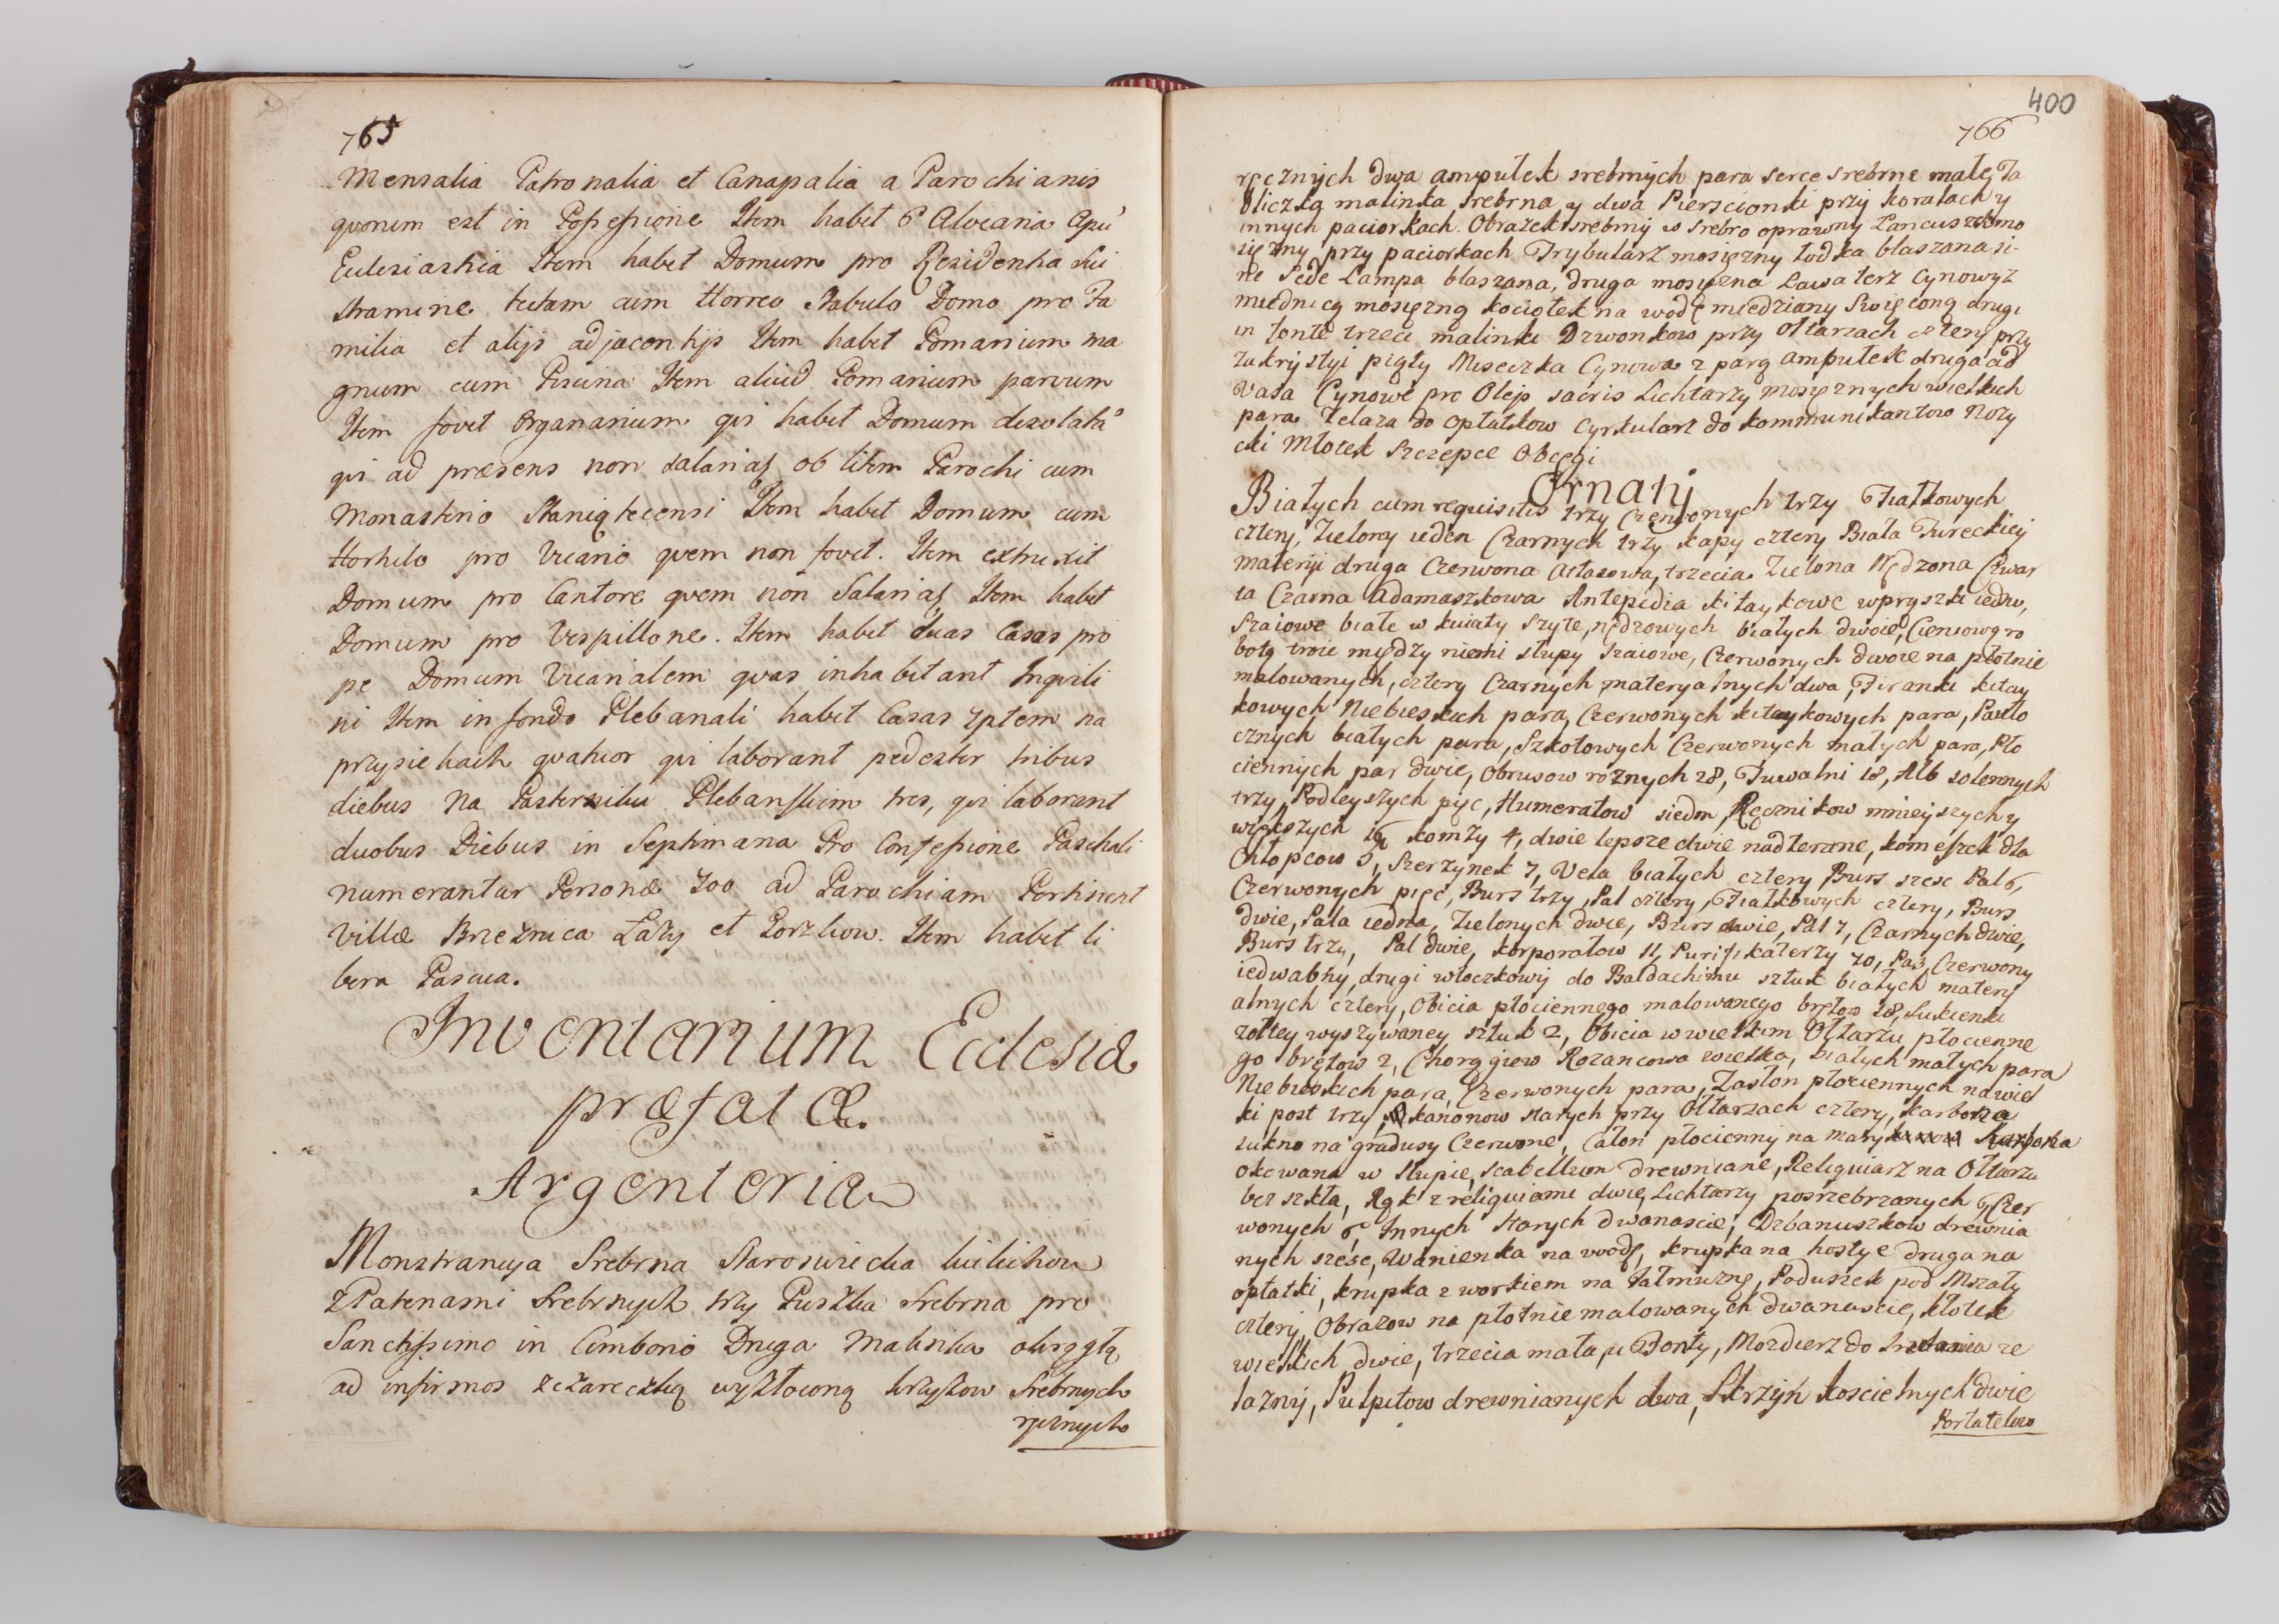 765
Mensalia Patronalia et Canapalia a Parochianis
quorum est in Possessione Item habet 6 Alvearia Apu
Eclesiastica Item habet Domum pro Residentia sui
stramine tectam cum Horreo Stabulo Domo pro Fa
milia et alijs adjacentijs Item habet Pomarium ma
gnum cum Piscina Item aliud Pomarium parvum
Item fovet Organarium qvi habet Domum dezolatã
qvi ad præsens non salariat ob litem Parochi cum
Monasterio Staniątecensi Item habet Domum cum
Hortulo pro Vicario qvem non fovet. Item extruxit
Domum pro Cantore qvem non Salariat Item habet
Domum pro Vespillone. Item habet duas Casas pro
pe Domum Vicarialem qvas inhabitant Inqvili
ni Item in fondo Plebanali habet Casas 7ptem na
przysiekach qvatuor qvi laborant pedester tribus
diebus na Pasterniku Plebanskim tres, qvi laborant
duobus Diebus in Septimana Pro Confessione Paschali
numerantur Personæ 700 ad Parochiam Pertinent
Villæ Brzeznica Łazy et Gorzkow. Item habet li
bera Pascua.
Inventarium Eclesiæ
præfatæ.
Argenteria
Monstrancya Srebrna Staroswiecka kielichow
z Patenami Srebrnych trzy Puszka Srebrna pro
Sanctissimo in Cimborio Druga Malinka okrągłą
ad infirmos z czareczką wyzłoconą krzyzow Srebrnych
ręcznych
400
766
ręcznych dwa ampułek srebrnych para serce srebrne małe, Ta
bliczką malinka srebrna y dwa Pierscionki przy koralach y
innych paciorkach. Obrazek srebrny w srebro oprawny Lancuszek mo
sięzny przy paciorkach Trybularz mosięzny łodka blaszana si-
ne Pede Lampa blaszana, druga mosięzna Lawaterz Cynowy z
miednicą mosięzną kociołek na wodę miedziany Swięconą drugi
in fonte trzeci malinki Dzwonkow przy Ołtarzach cztery przy
zakrystyi piąty Miseczka Cynowa z parą ampułek druga ad
Vasa Cynowe pro Olejs sacris Lichtarzy mosięznych wielkich
para Zelaza do opłatkow Cyrkularz do kommunikantow Nozy
cki Młotek Szczepce Obcęgi
Ornaty
Białych cum requisitis trzy Czerwonych trzy Fiałkowych
cztery, Zielony ieden Czarnych trzy kapy cztery Biała Tureckiey
materyi druga Czerwona Atłasowa, trzecia Zielona Nędzona Czwar
ta Czarna Adamaszkowa Antepedia kitaykowe wpryszki iedw,
Szaiowe białe w kwiaty szyte, nędzowych białych dwoie, Cieniową ro
botą troie między niemi słupy szaiowe, Czerwonych dwoie na płotnie
malowanych, cztery Czarnych materyalnych dwa, Firanki kitay
kowych Niebieskich para, Czerwonych kitaykowych para,
cznych białych para, Szkotowych Czerwonych małych para, Pło
ciennych par dwie, Obrusow roznych 28, Tuwalni 18, Alb solennych
trzy Podleyszych pięc, Humerałow siedm, Ręcznikow mnieyszych y
większych 16 komzy 4, dwie lepsze dwie nadterane, komeszek dla
Chłopcow 5, Szerzynek 7, Vela białych cztery Burs szesc Pal 6,
Czerwonych pięc, Burs trzy, Pal cztery, Fiałkowych cztery, Burs
dwie, Pala iedna, Zielonych dwie, Burs dwie, Pal 7, Czarnych dwie,
Burs trzy, Pal dwie, korporałow 11, Purifikaterzy 70, Pas Czerwony
iedwabny, drugi włoczkowy do Baldachimu sztuk białych matery
alnych cztery, Obicia płociennego malowanego brętow 28, Sukienki
zołtey wyszywaney sztuk 2, Obicia w wielkim Ołtarzu płocienne
go brętow 2, Chorągiew Rozancowa wielka, białych małych para
Niebieskich para, Czerwonych para, Zasłon płociennych na wiel
ki post trzy, kanonow starych przy Ołtarzach cztery,
sukno na gradusy Czerwone, Całon płocienny na mary Karbona
okowana w słupie, scabellum drewniane, Reliquiarz na Ołtarzu
bez szkła, Rąk z reliquiami dwie, Lichtarzy posrzebrzanych 6, Czer
wonych 6, Innych starych dwanascie, Dzbanuszkow drewnia
nych szesc, Wanienka na wodę, krupka na hostye druga na
opłatki, krupka z workiem na Jałmuznę, Poduszek pod Mszały
cztery, Obrazow na płotnie malowanych dwanascie, kłotek
wielkich dwie, trzecia mała u Fonty, Mozdierz do strzelania ze
lazny, Pulpitow drewnianych dwa, Skrzyń koscielnych dwie
Portatelow